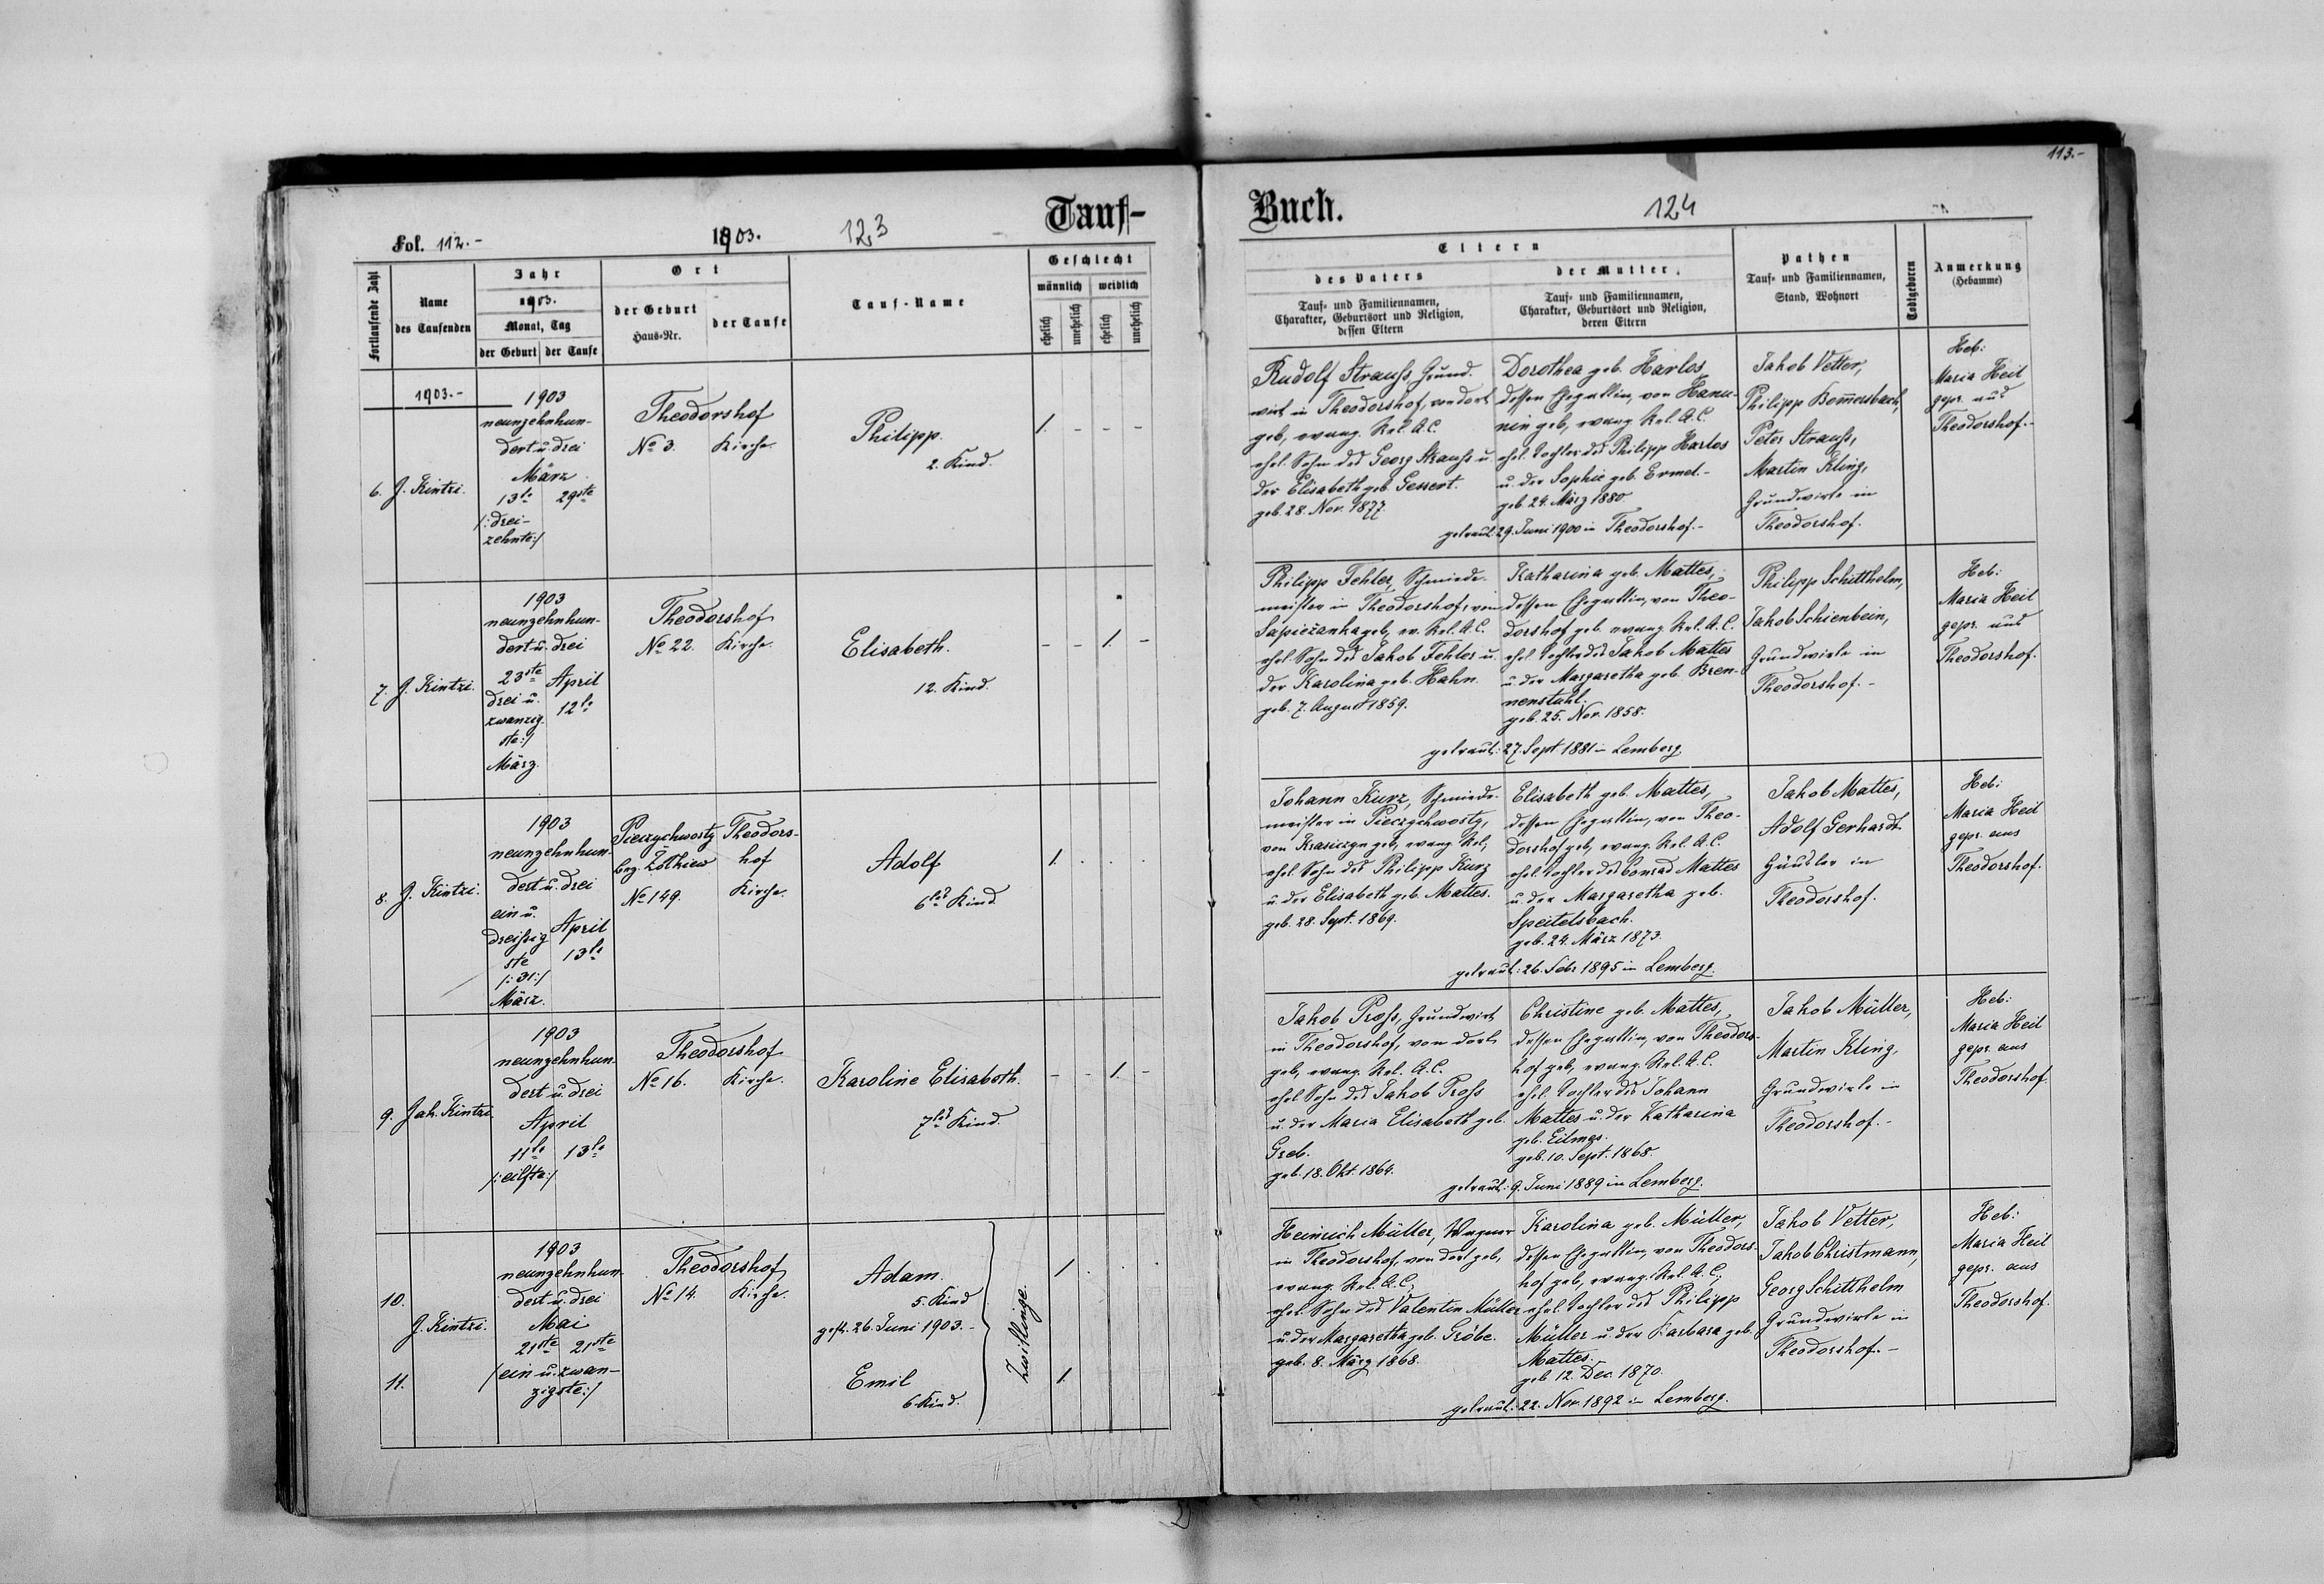 Fol. 112.-
1903.
123
Tauf-
Fortlaufende Zahl
Name
des Taufenden
Jahr
1903.
Monat, Tag
der Geburt
der Taufe
Ort
der Geburt
Haus-Nr.
der Taufe
Tauf-Name
Geschlecht
männlich
weiblich
ehelich
unehelich
ehelich
unehelich
1903.-
6.
J. Kintzi.
1903
neunzehnhun-
dert u. drei
März
13te 29ste
/: drei-
zehnte :/
Theodorshof
No 3. Kirche.
Philipp.
2. Kind.
1. - - -
7.
J. Kintzi.
1903
neunzehnhun-
dert u. drei
23ste April
drei u. 12te
zwanzig-
ste :/
März.
Theodorshof
No 22. Kirche.
Elisabeth.
12. Kind.
- - 1. -
8.
J. Kintzi.
1903
neunzehnhun-
dert u. drei
ein u.
dreißig April
ste 13te
/: 31 :/
März.
Pieczychwosty Theodors-
bez. Żółkiew hof
No 149. Kirche.
Adolf
6tes Kind.
1. . . .
9.
Jak. Kintzi
1903
neunzehnhun-
dert u. drei
April
11te 13te
/: eilfte :/
Theodorshof
No 16. Kirche.
Karoline Elisabeth.
7tes Kind.
- - 1. -
10.
J. Kintzi.
11.
1903
neunzehnhun-
dert u. drei
Mai
21ste 21ste
/ ein u. zwan-
zigste :/
Theodorshof
No 14. Kirche.
Adam.
5. Kind
gest. 26. Juni 1903.-
Emil
6. Kind.
Zwillinge.
1 . . .
1.
113.-
Buch.
124
Eltern
des Vaters
Tauf- und Familiennamen,
Charakter, Geburtsort und Religion,
dessen Eltern
der Mutter.
Tauf- und Familiennamen,
Charakter, Geburtsort und Religion,
deren Eltern
Pathen
Tauf- und Familiennamen,
Stand, Wohnort
Todtgeboren
Anmerkung
(Hebamme)
Rudolf Strauss, Grund-
wirt in Theodorshof, von dort
geb., evang. Rel. A.C.
ehel. Sohn des Georg Strauss u.
der Elisabeth geb. Gessert.
geb. 28. Nov. 1877
Dorothea geb. Harlos
dessen Ehegattin, von Hanu-
nin geb., evang. Rel. A.C.
ehel. Tochter des Philipp Harlos
u. der Sophie geb. Ermel.-
geb. 24. März 1880
getraut: 29. Juni 1900 in Theodorshof.-
Jakob Vetter,
Philipp Bom̅ersbach,
Peter Strauss,
Martin Kling,
Grundwirte in
Theodorshof.
Heb:
Maria Heil
gepr. aus
Theodorshof.-
Philipp Fehler, Schmiede-
meister in Theodorshof, von
Sapieżanka geb., ev. Rel. A.C.
ehel. Sohn des Jakob Fehler u.
der Karolina geb. Hahn.
geb. 7. August 1859.
Katharina geb. Mattes,
dessen Ehegattin, von Theo-
dorshof geb. evang. Rel. A.C.
ehel. Tochter des Jakob Mattes
u. der Margaretha geb. Bren-
nenstuhl.
geb. 25. Nov. 1858.
getraut: 27. Sept. 1881 in Lemberg
Philipp Schitthelm,
Jakob Schienbein,
Grundwirte in
Theodorshof.-
Heb:
Maria Heil
gepr. aus
Theodorshof.
Johann Kurz, Schmiede-
meister in Pieczychwosty,
von Krasiczyn geb., evang. Rel.,
ehel. Sohn des Philipp Kurz
u. der Elisabeth geb. Mattes.
geb. 28. Sept. 1869.
Elisabeth geb. Mattes,
dessen Ehegattin, von Theo-
dorshof geb., evang. Rel. A.C.
ehel. Tochter des Conrad Mattes
u. der Margaretha geb.
Speitelsbach.
geb. 24. März 1873.
getraut: 26. Febr. 1895 in Lemberg.
Jakob Mattes,
Adolf Gerhardt
Häusler in
Theodorshof.
Heb:
Maria Heil
gepr. aus
Theodorshof.
Jakob Pross, Grundwirt
in Theodorshof, von dort
geb., evang. Rel. A.C.
ehel. Sohn des Jakob Pross
u. der Maria Elisabeth geb.
Greb.
geb. 18. Okt. 1864.
Christine geb. Mattes,
dessen Ehegattin, von Theodors-
hof geb., evang. Rel. A.C.
ehel. Tochter des Johann
Mattes u. der Katharina
geb. Eilmes.
geb. 10. Sept. 1868
getraut: 9. Juni 1889 in Lemberg.
Jakob Müller,
Martin Kling,
Grundwirte in
Theodorshof.-
Heb:
Maria Heil
gepr. aus
Theodorshof.
Heinrich Müller, Wagner
in Theodorshof, von dort geb.,
evang. Rel. A.C.,
ehel. Sohn des Valentin Müller
u. der Margaretha geb. Gröbe.
geb. 8. März 1868.
Karolina geb. Müller,
dessen Ehegattin, von Theodors-
hof geb., evang. Rel. A.C.,
ehel. Tochter des Philipp
Müller u. der Barbara geb.
Mattes.
geb. 12. Dec. 1870.
getraut: 22. Nov. 1892 in Lemberg.
Jakob Vetter,
Jakob Christmann,
Georg Schitthelm
Grundwirte in
Theodorshof.-
Heb:
Maria Heil
gepr. aus
Theodorshof.